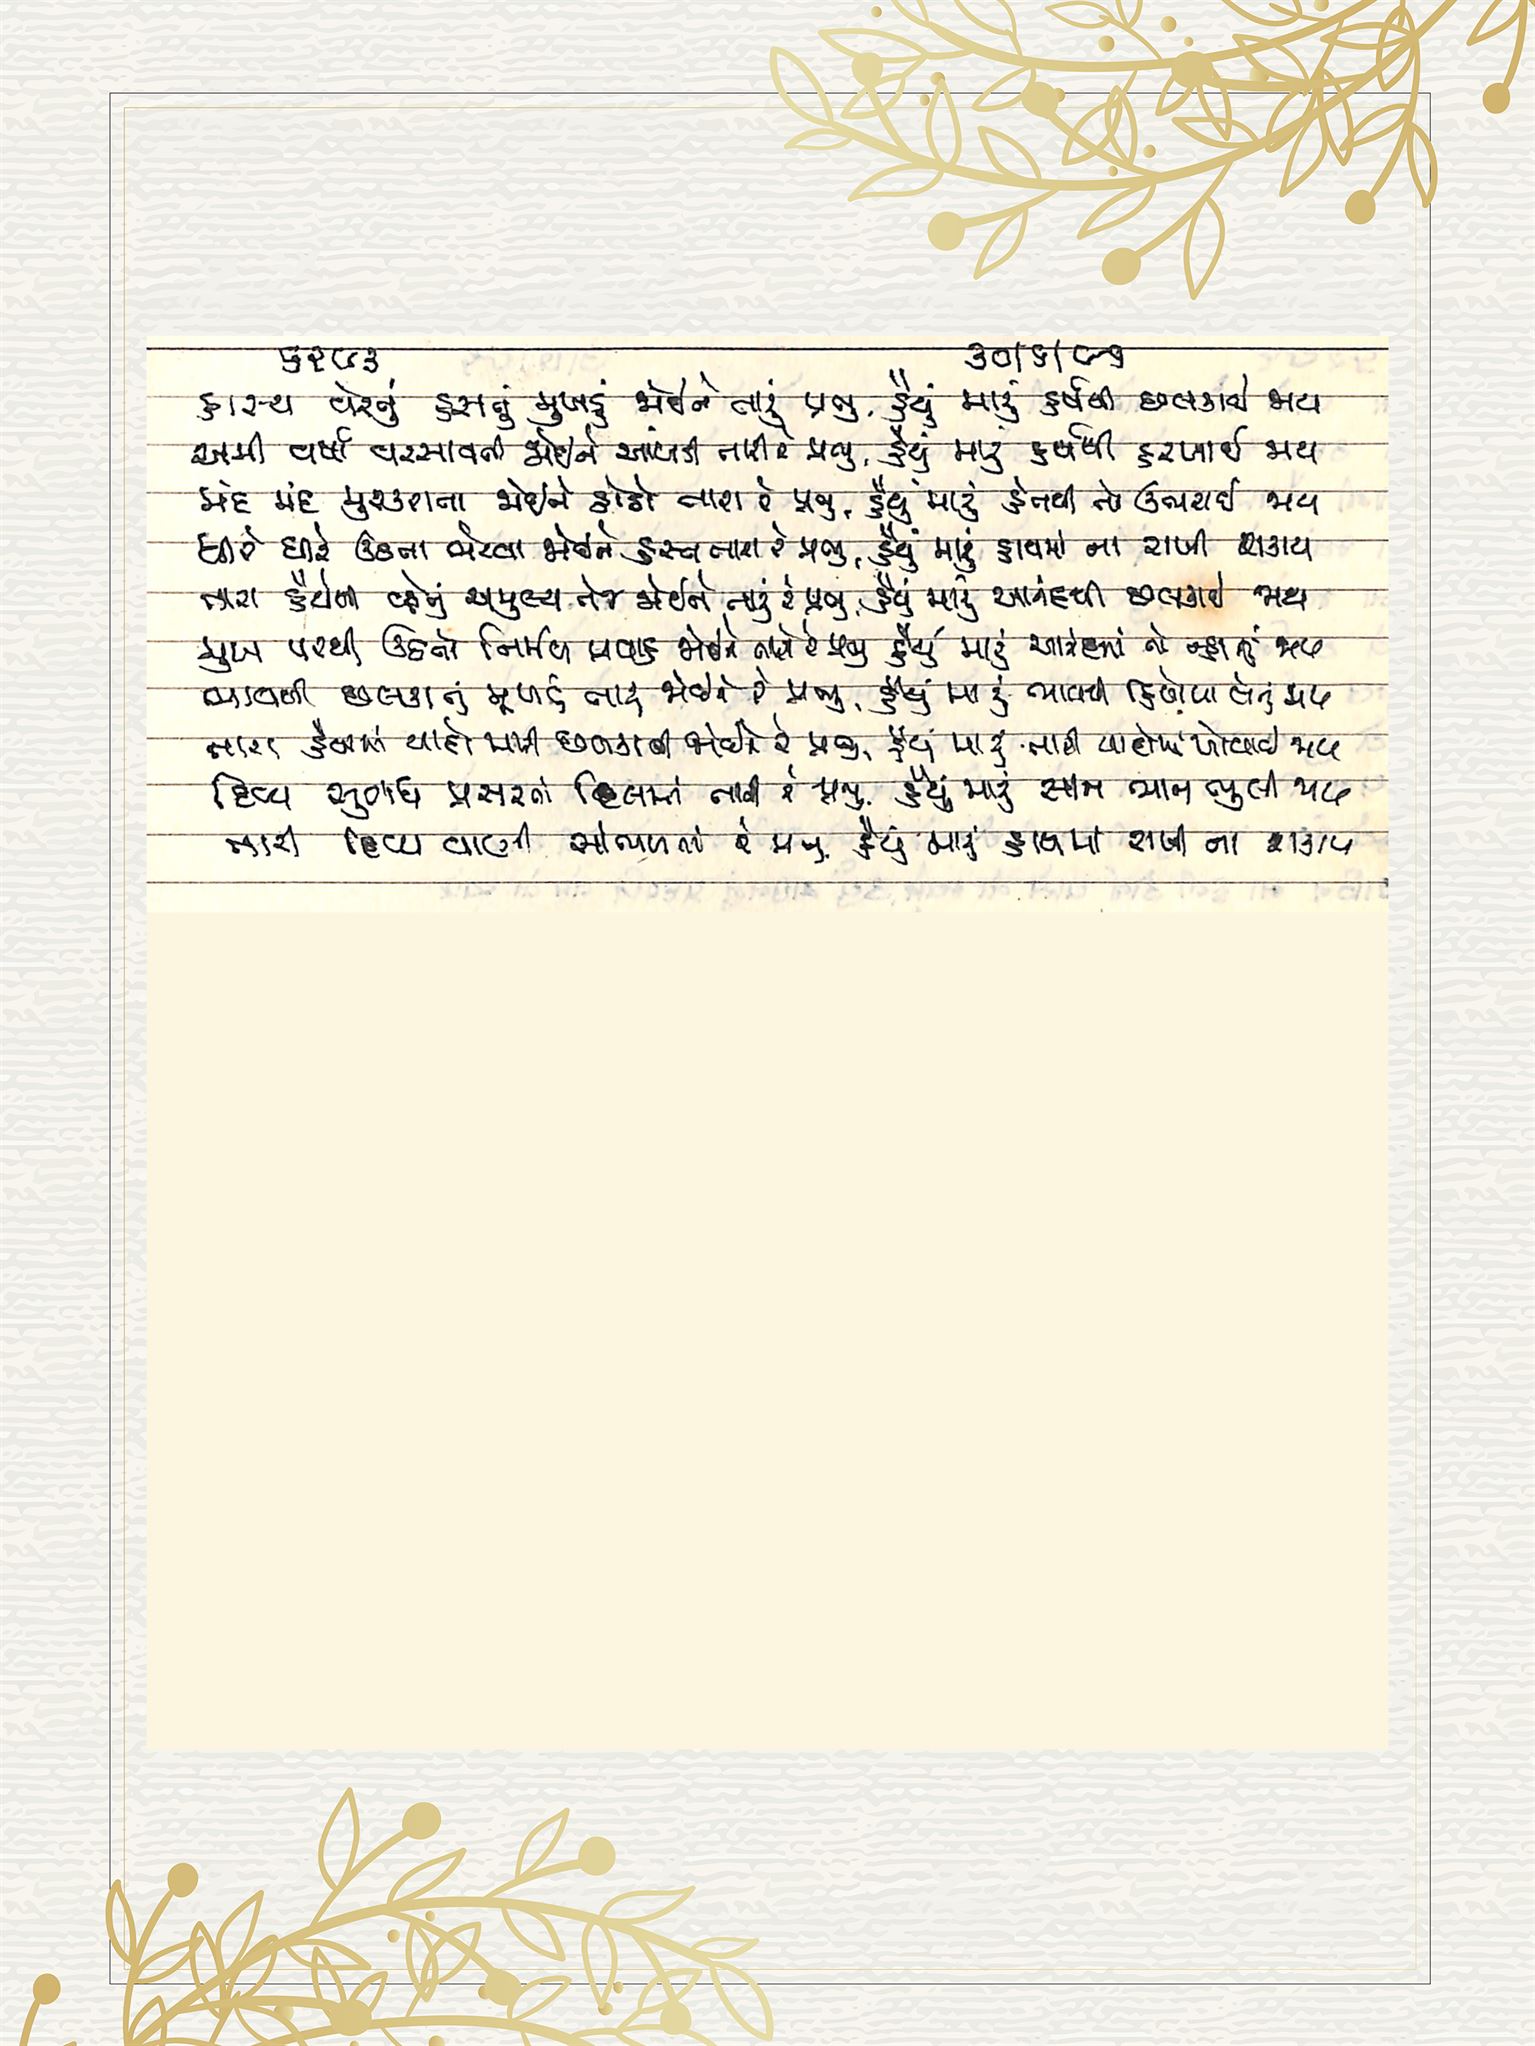 ૬૨૯૩ ૩૦/૬/૯૬
હાસ્ય વેરતું હસતું મુખડું જોઈને તારું પ્રભુ, હૈયું મારું હર્ષથી છલકાઈ જાય
અમી વર્ષા વરસાવતી જોઈને આંખડી તારી રે પ્રભુ, હૈયું મારું હર્ષથી હરખાઈ જાય
મંદ મંદ મુસ્કરાતા જોઈને હોઠો તારા રે પ્રભુ, હૈયું મારું હેતથી તો ઉભરાઈ જાય
ધીરે ધીરે ઉઠતા જોઈને હસ્ત તારા રે પ્રભુ, હૈયું મારું હાથમાં ના રાખી શકાય
તારા હૈયાંના અમુલ્ય તેજ જોઈને તારું રે પ્રભુ, હૈયું મારું આનંદથી છલકાઈ જાય
મુખ પરથી ઉઠતો નિર્મળ પ્રવાહ જોઈને તારો રે પ્રભુ હૈયું મારું આનંદમાં તો ન્હાતું જાય
છલકતું મુખડું તારું જોઈને રે પ્રભુ, હૈયું મારું ભાવથી હિલોળા લેતું જાય
તારા હૈયામાં યાદો મારી છલકાતી જોઈને રે પ્રભુ, હૈયું મારું તારી યાદોમાં ખોવાઈ જાય
દિવ્ય સુગંધ પ્રસરતાં દિલમાં તારી રે પ્રભુ, હૈયું મારું સાન ભાન ભુલી જાય
તારી દિવ્ય વાણી સાંભળતાં રે પ્રભુ, હૈયું મારું હાથમાં રાખી ના શકાય